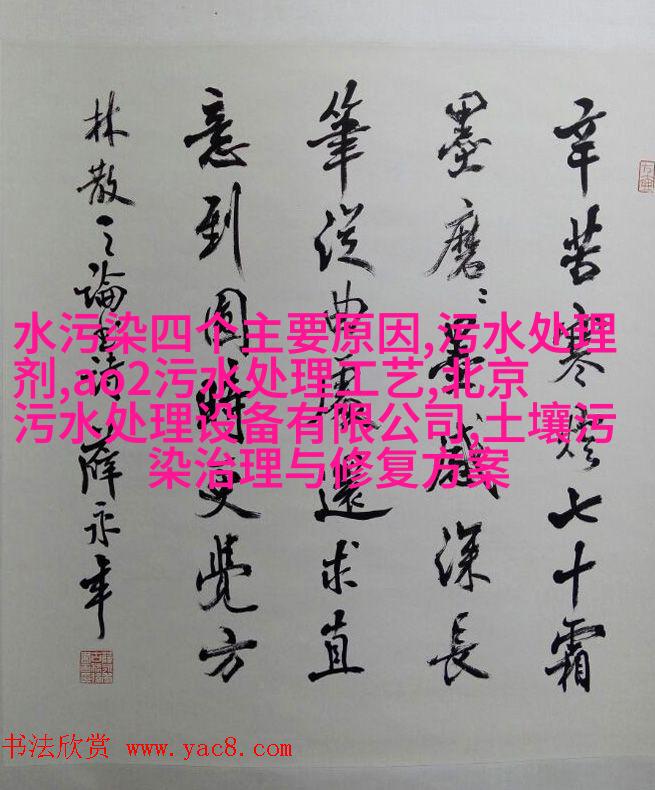 辛苦寒燈七十霜
墨磨〻墨感深長
筆從曲處還求直
意到圓時更覺方
林散之論書詩 薛永年
水污染四个主要原因,污水处理
剂,ao2污水处理工艺,北京
污水处理设备有限公司,土壤污
染治理与修复方案
书法欣赏 www.yac8.com